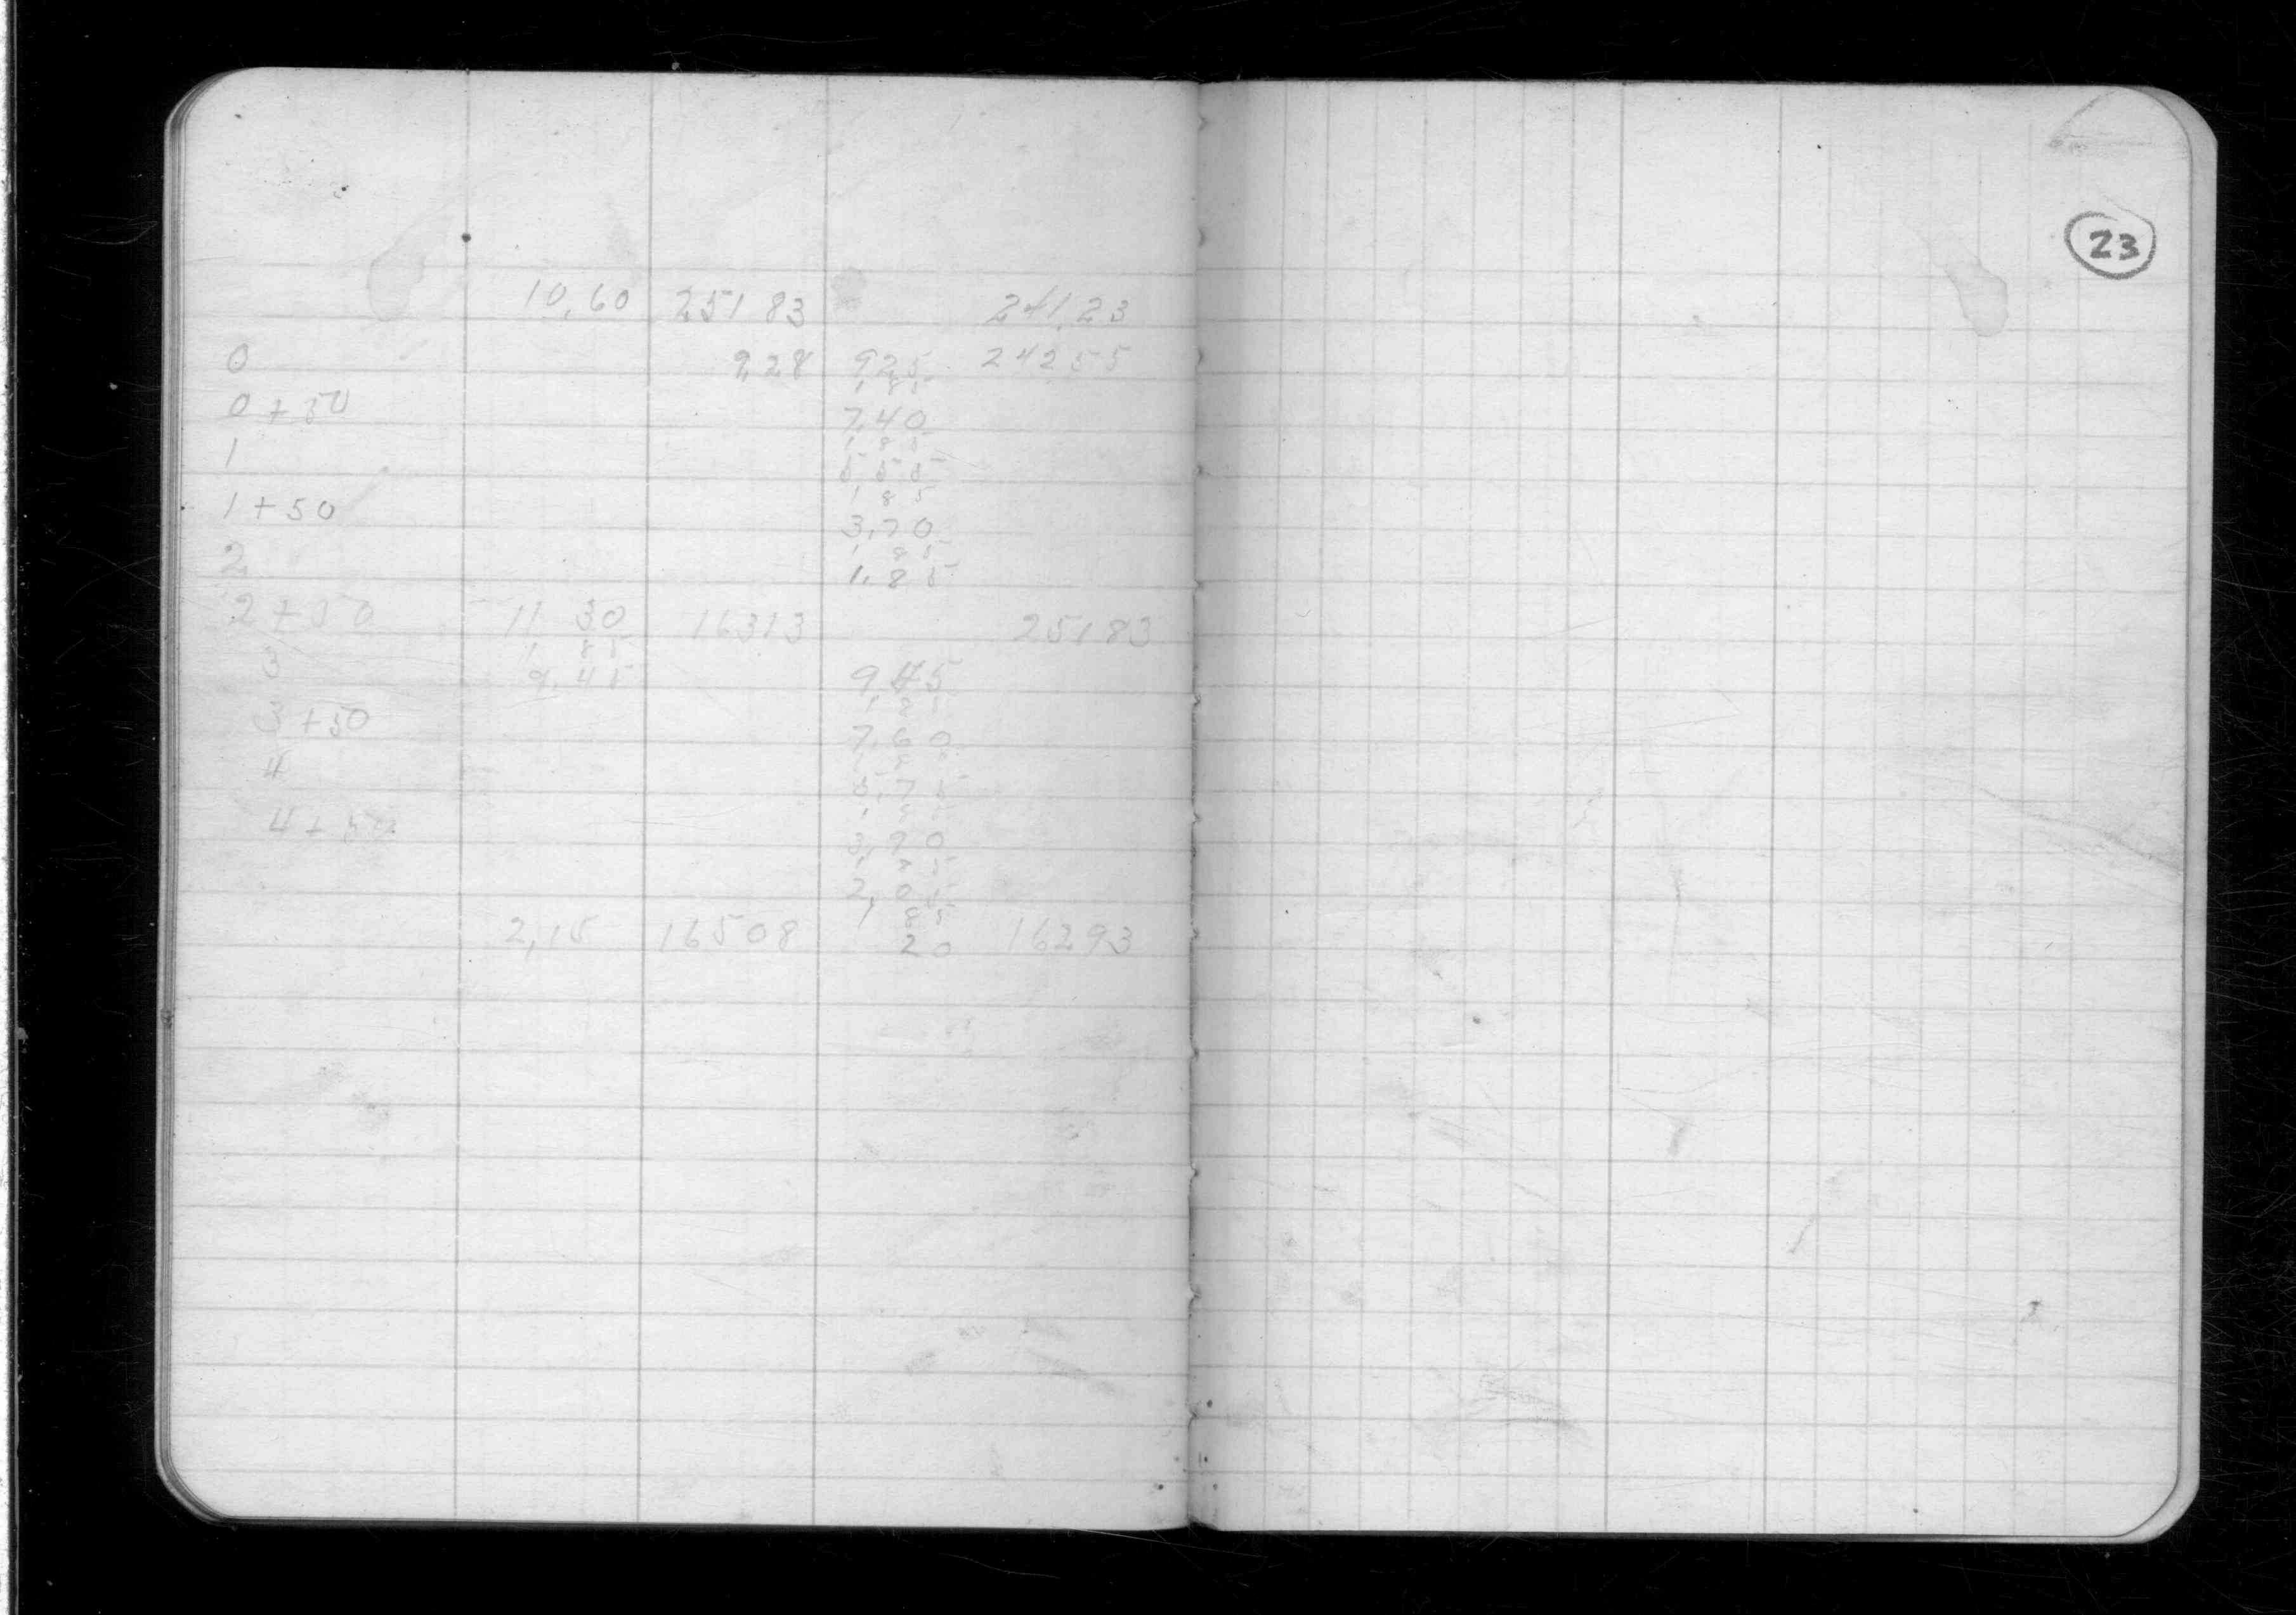 23
10,60 251 83 241,23
0 9,28 925 24255
1 85
0 + 50 7,40
1 85
1 5 5 5
1 85
1 + 50 3,70
1 85
2 1,85
2 + 50 11 30 16313 25183
1 85
3 9,45 9,45
1 8
3 +50 7,60
4 5,75
1
4 + 50 3,90
2,05
1 85
2,15 16508 20 16293